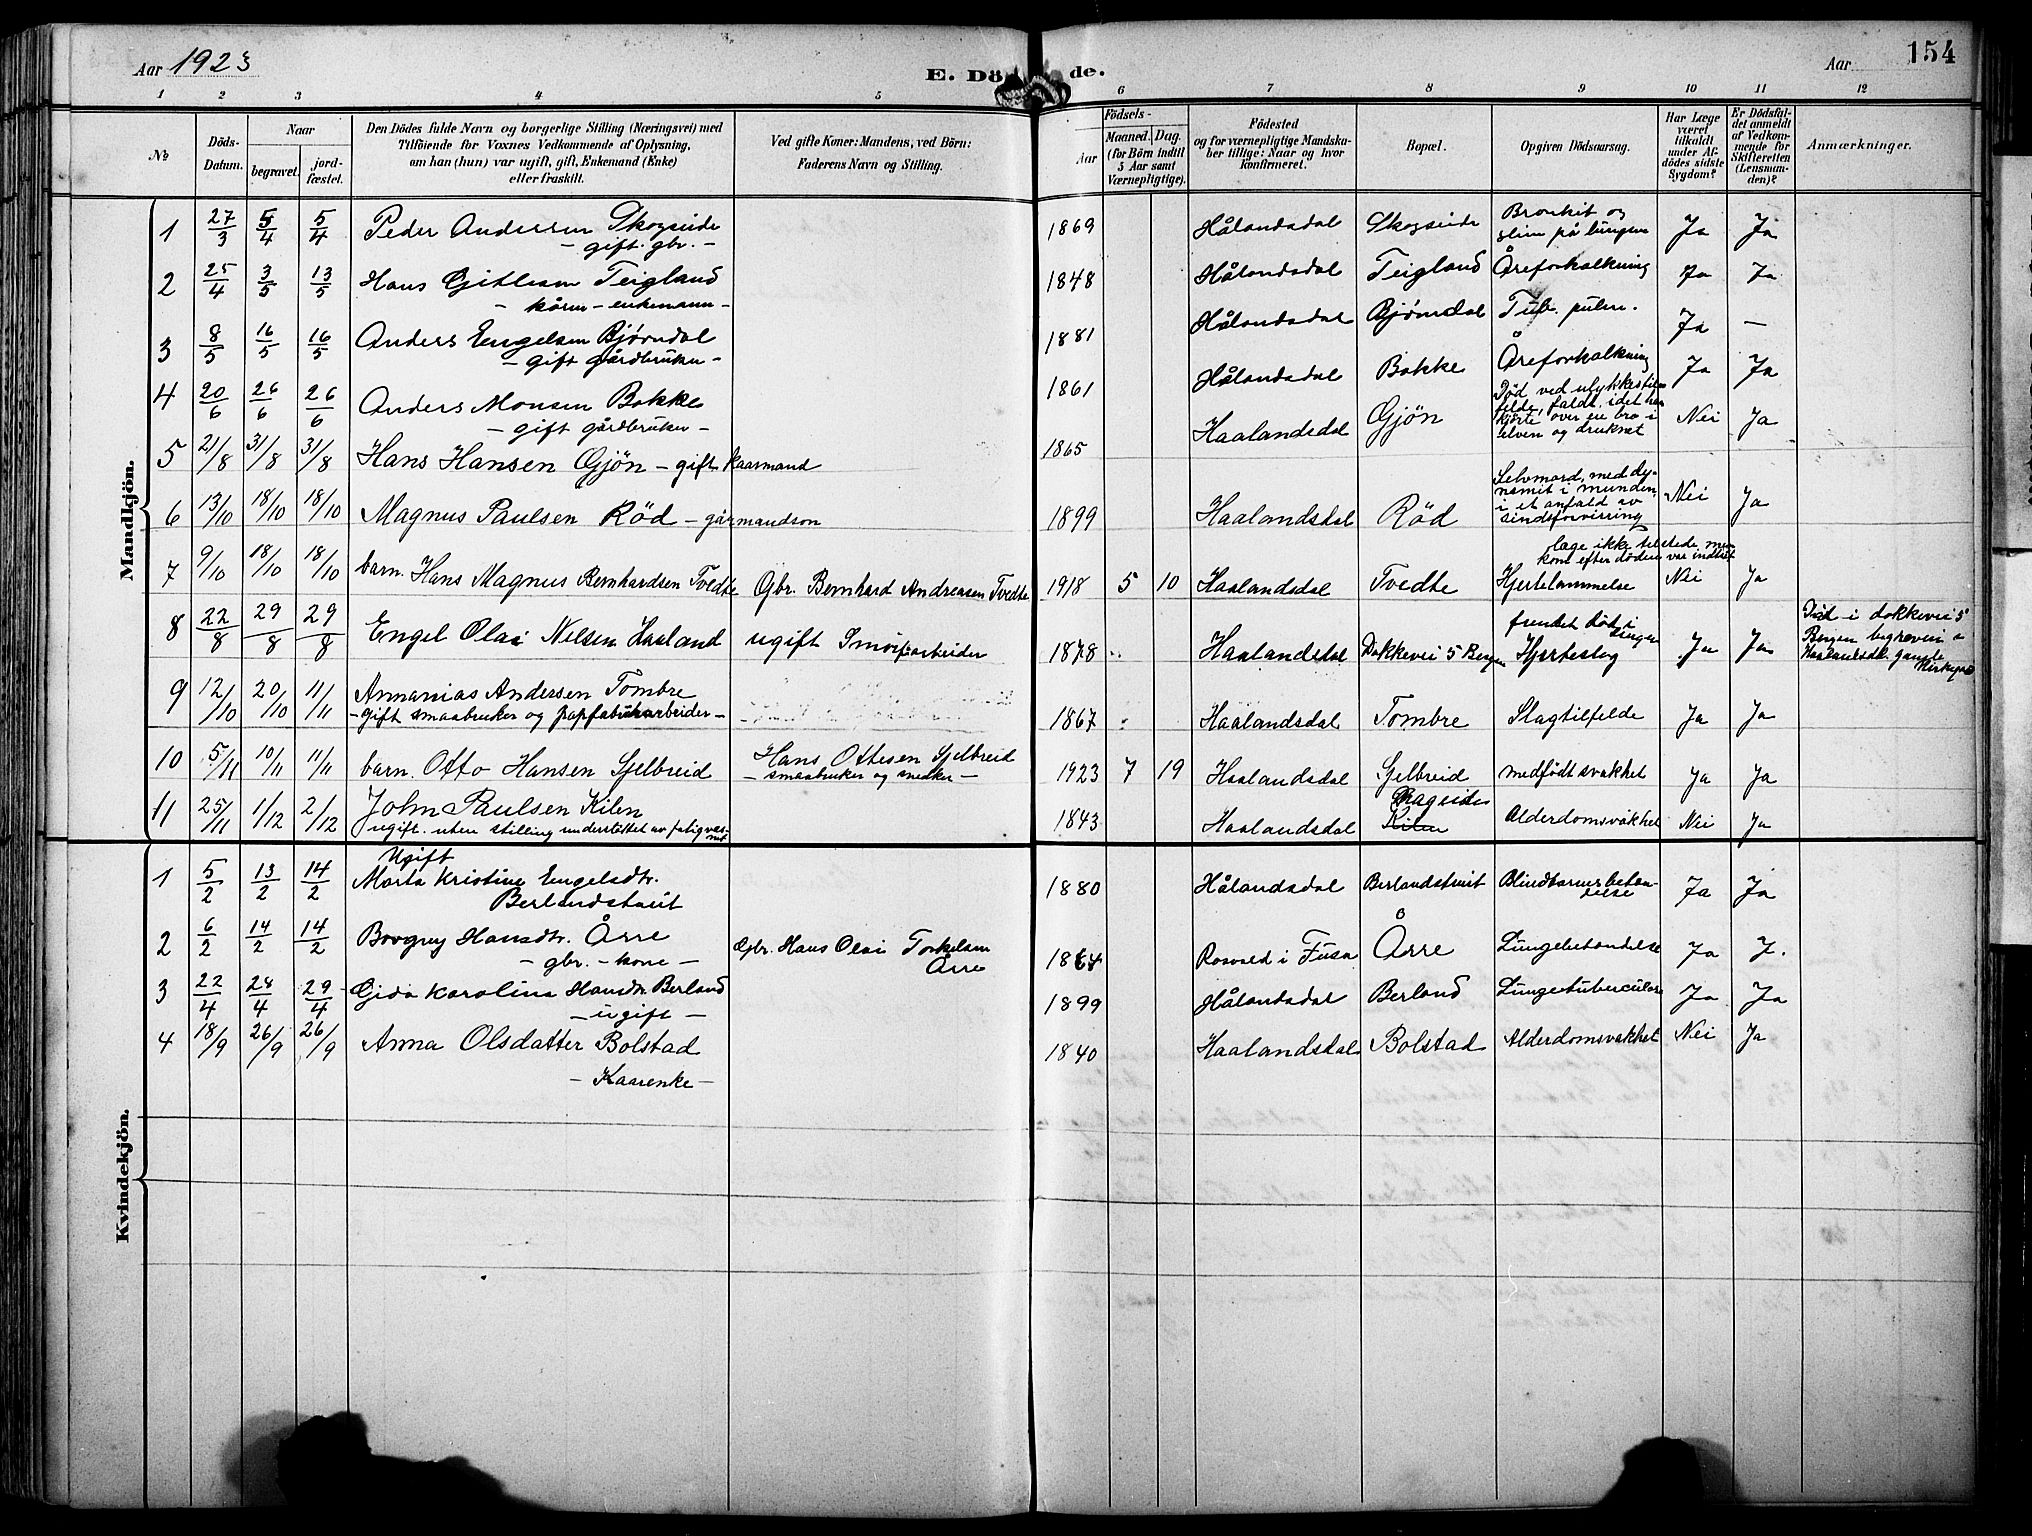 Aar 1923
E. Döde.
Aar
154
1 2 3 4 5 6 7 8 9 10 11 12
№
Döds-Datum.
Naar
begravet.
jordfæstet.
Den Dödes fulde Navn og borgerlige Stilling (Næringsvei) med
Tilföiende for Voxnes Vedkommende af Oplysning,
om han (hun) var ugift, gift, Enkemand (Enke)
eller fraskilt.
Ved gifte Koner: Mandens, ved Börn:
Faderens Navn og Stilling.
Födsels-
Aar
Maaned. Dag.
(for Börn indtil
5 Aar samt
Værnepligtige).
Födested
og for værnepligtige Mandska-
ber tillige: Naar og hvor
konfirmeret.
Bopæl.
Opgiven Dödsaarsag.
Har Læge
været
tilkaldt
under Af-
dödes sidste
Sygdom?
Er Dödsfal-
det anmeldt
af Vedkom-
mende for
Skifteretten
(Lensman-
den)?
Anmærkninger.
Mandkjön.
1 27/3 5/4 5/4 Peder Andersen Skogseide 1869 Hålandsdal Skogseide Bronkit og
slim på lungen Ja Ja
- gift gbr. -
2 25/4 3/5 13/5 Hans Gitlesen Teigland 1848 Hålandsdal Teigland Åreforkalkning Ja Ja
- kårm - enkemann -
3 8/5 16/5 16/5 Anders Engelsen Bjørndal 1881 Hålandsdal Bjørndal Tub. pulm. Ja -
- gift gårdbruker -
4 20/6 26/6 26/6 Anders Monsen Bakke 1861 Hålandsdal Bakke Åreforkalkning Ja Ja
- gift gårdbruker -
5 21/8 31/8 31/8 Hans Hansen Gjön - gift kaarmand 1865 Haalandsdal Gjön Död ved ulykkestil-
felde, faldt, idet han
kjørte over en bro i
elven og druknet Nei Ja
6 13/10 18/10 18/10 Magnus Paulsen Röd - gårmandsön 1899 Haalandsdal Röd Selvmord, med dy-
namit i munden,
i et anfald av
sindsforvirring Nei Ja
7 9/10 18/10 18/10 barn. Hans Magnus Bernhardsen Tvedte Gbr. Bernhard Andreasen Tvedte 1918 5 10 Haalandsdal Tvedte læge ikke tilstede, men
kom efter döden var indtrt
Hjertelammelse Nei Ja
8 22/8 29/8 29/8 Engel Olai Nilsen Haaland ugift 1878 Haalandsdal Dokkevei 5 Bergen fundet död i sengen
Hjerteslag Ja Ja Död i dokkevei 5
Bergen begraven
Haalandsdl. gamle
Kirkegrd
9 12/10 20/10 11/11 Annanias Andersen Tombre 1867 Haalandsdal Tombre Slagtilfelde Ja Ja
- gift smaabruker og papfabrikarbeider -
10 5/11 10/11 11/11 barn. Otto Hansen Gjelbreid Hans Ottesen Gjelbreid
- smaabruker og snedker - 1923 7 19 Haalandsdal Gjelbreid medfödt svakhet Ja Ja
11 25/11 1/12 2/12 John Paulsen Kilen 1843 Haalandsdal Kilen Alderdomsvakhet Nei Ja
ugift. uten stilling understöttet av
Kvindekjön.
1 5/2 13/2 14/2 Ugift
Marta Kristine Engelsdtr.
Berlandstveit 1880 Hålandsdal Berlandstveit Blindtarmsbetæn-
delse Ja Ja
2 6/2 14/2 14/2 Hansdtr. Årre Gbr. Hans Olai Torkelsen
Årre 1864 i Fusa Årre Lungebetændelse Ja J.
- gbr. - kone -
3 22/4 28/4 29/4 Gida Karolina Hansdtr Berland 1899 Hålandsdal Berland Lungetuberculose Ja Ja
- ugift -
4 18/9 26/9 26/9 Anna Olsdatter Bolstad 1840 Haalandsdal Bolstad Alderdomsvakhet Nei Ja
- Kaarenke -